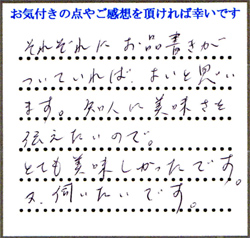 お気付きの点やご感想を頂ければ幸いです
それぞれに お品書きが
ついていれば よいと思い
ます。知人に美味さを
伝えたいので。
とても美味しかったです。
又、伺いたいです。